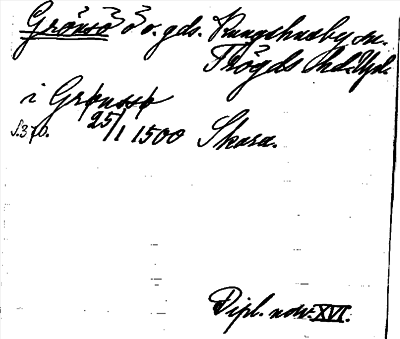 Grönsö ö o. gds. Kungshusby sn.
Trögds hd. Upl.
i Grønsø
s. 370. 25/1 1500 Skara.
Dipl. norv. XVI.